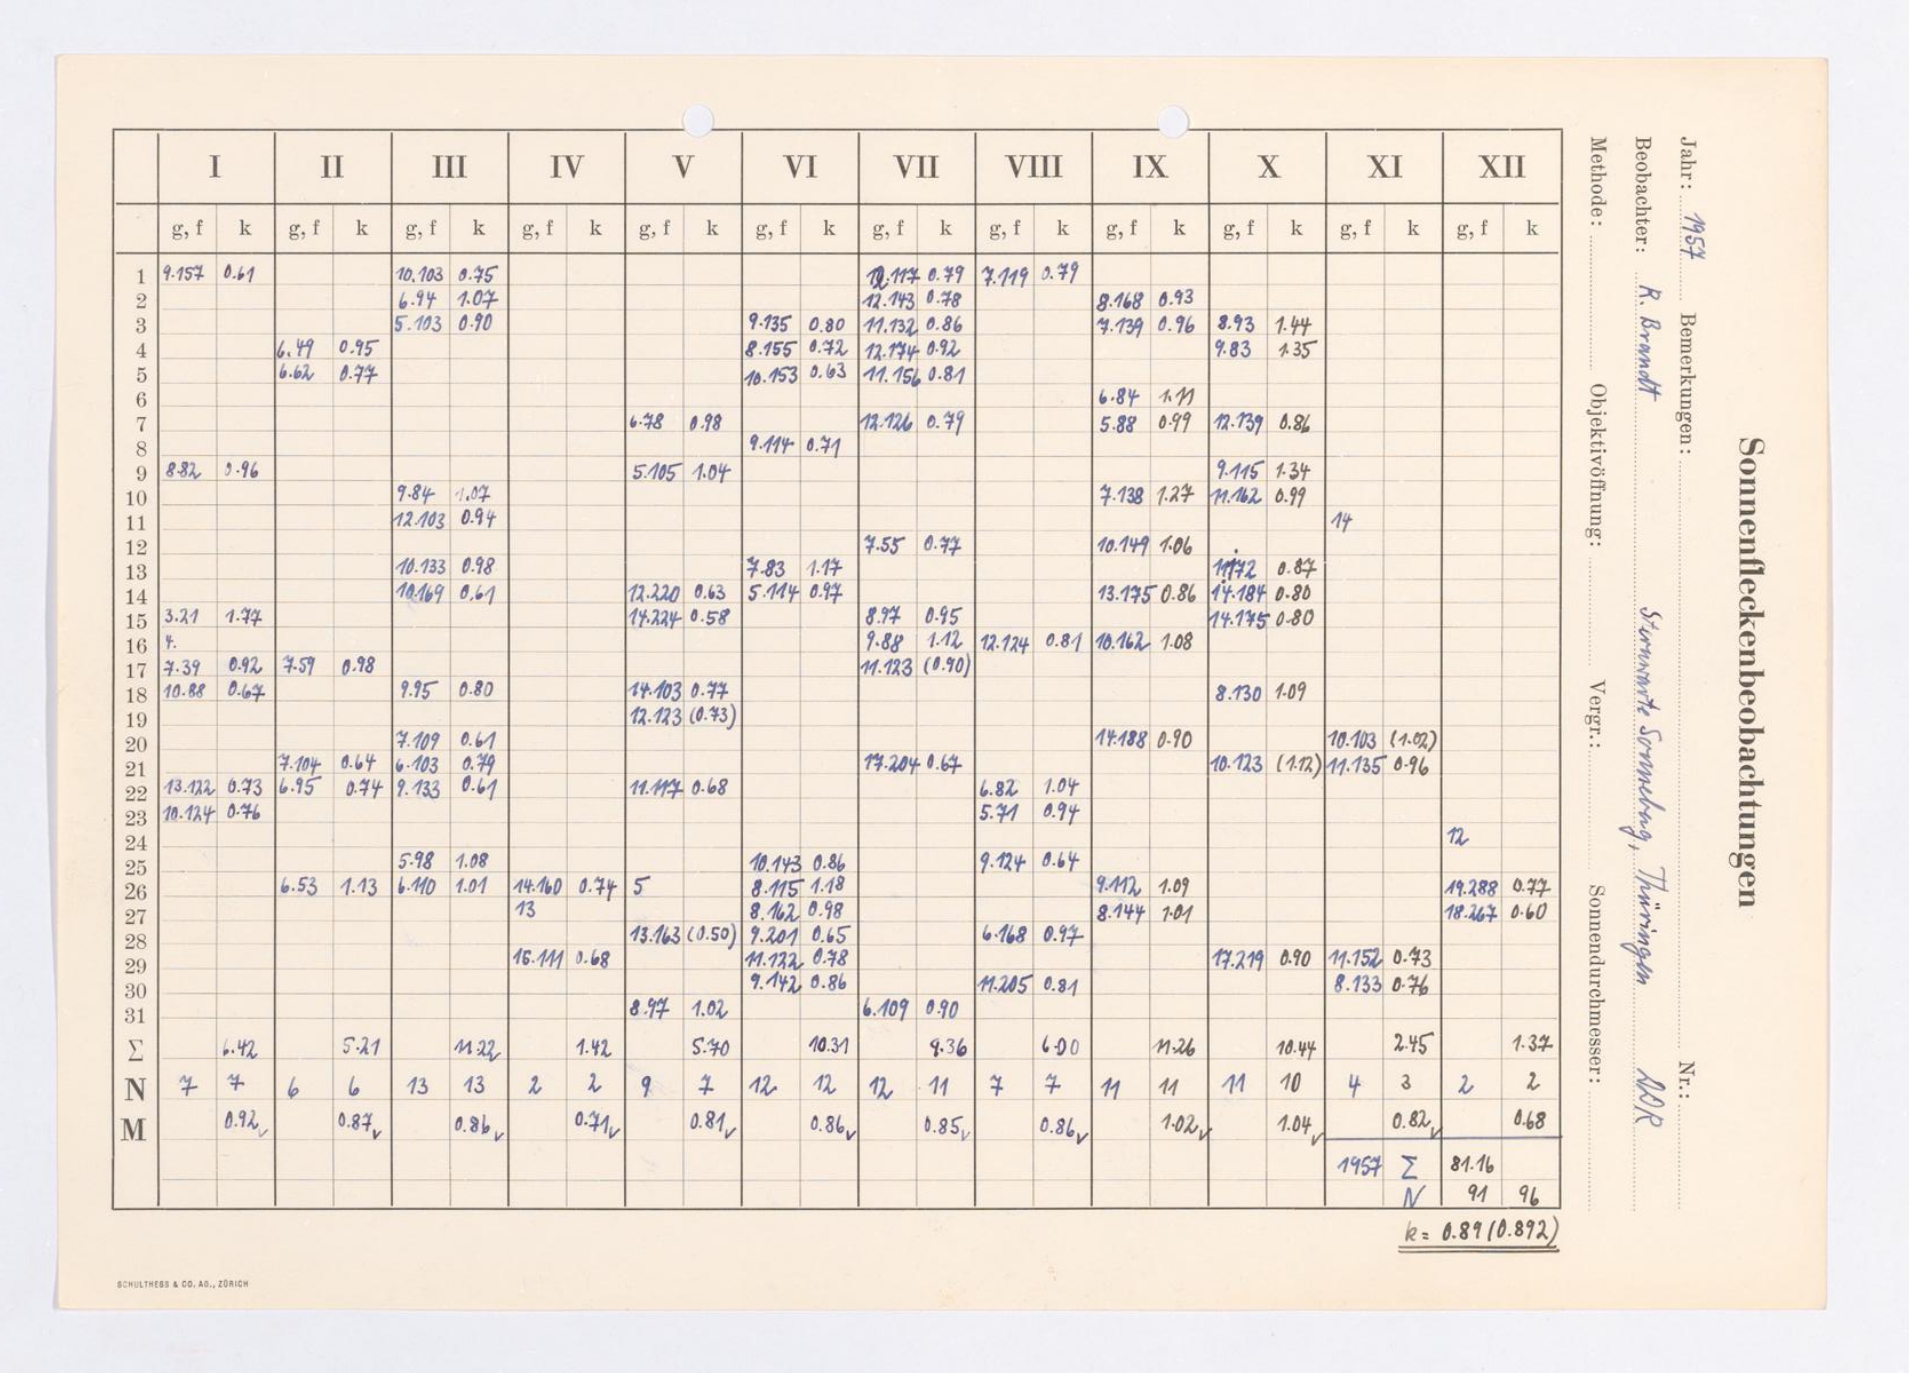 Sonnenfleckenbeobachtungen
Jahr: 1957 Bemerkungen: Nr.:
Beobachter: R. Brandt Sternwarte Sonneberg, Thüringen DDR
Methode: Objektivöffnung: Vergr.: Sonnendurchmesser:
I II III IV V VI VII VIII IX X XI XII
g, f k g, f k g, f k g, f k g, f k g, f k g, f k g, f k g, f k g, f k g, f k g, f k
1 9.157 0.61 10.103 0.75 12.117 0.79 7.119 0.79
2 6.94 1.07 12.143 0.78 8.168 0.93
3 5.103 0.90 9.135 0.80 11.132 0.86 7.139 0.96 8.93 1.44
4 6.49 0.95 8.155 0.72 12.174 0.92 9.83 1.35
5 6.62 0.77 10.153 0.63 11.156 0.81
6 6.84 1.11
7 6.78 0.98 12.126 0.79 5.88 0.99 12.139 0.86
8 9.114 0.71
9 8.82 0.96 5.105 1.04 9.115 1.34
10 9.84 1.07 7.138 1.27 11.162 0.99
11 12.103 0.94 14
12 7.55 0.77 10.149 1.06
13 10.133 0.98 7.83 1.17 11.172 0.87
14 10.169 0.61 12.220 0.63 5.114 0.97 13.175 0.86 14.184 0.80
15 3.21 1.77 14.224 0.58 8.97 0.95 14.175 0.80
16 4. 9.88 1.12 12.124 0.81 10.162 1.08
17 7.39 0.92 7.59 0.98 11.123 (0.90)
18 10.88 0.67 9.95 0.80 14.103 0.77 8.130 1.09
19 12.123 (0.73)
20 7.109 0.61 14.188 0.90 10.103 (1.02)
21 7.104 0.64 6.103 0.79 17.204 0.67 10.123 (1.12) 11.135 0.96
22 13.122 0.73 6.95 0.74 9.133 0.61 11.117 0.68 6.82 1.04
23 10.124 0.76 5.71 0.94
24 12
25 5.98 1.08 10.143 0.86 9.124 0.64
26 6.53 1.13 6.110 1.01 14.160 0.74 5 8.115 1.18 9.112 1.09 19.288 0.77
27 13 8.162 0.98 8.144 1.01 18.267 0.60
28 13.163 (0.50) 9.201 0.65 6.168 0.97
29 16.111 0.68 11.122 0.78 17.219 0.90 11.152 0.73
30 9.142 0.86 11.205 0.81 8.133 0.76
31 8.97 1.02 6.109 0.90
Σ 6.42 5.21 11.22 1.42 5.70 10.31 9.36 6.00 11.26 10.44 2.45 1.37
N 7 7 6 6 13 13 2 2 9 7 12 12 12 11 7 7 11 11 11 10 4 3 2 2
M 0.92 0.87 0.86 0.71 0.81 0.86 0.85 0.86 1.02 1.04 0.82 0.68
1957 Σ 81.16
N 91 96
k = 0.89 (0.892)
SCHULTHESS & CO. AG., ZÜRICH